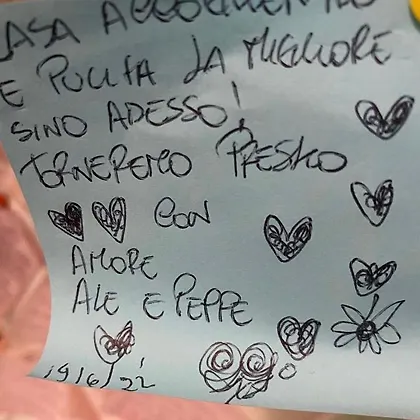 CASA ACCOGLIENTE
E PULITA LA MIGLIORE
SINO ADESSO!
TORNEREMO PRESTO
CON
AMORE
ALE E PEPPE
19/6/'22